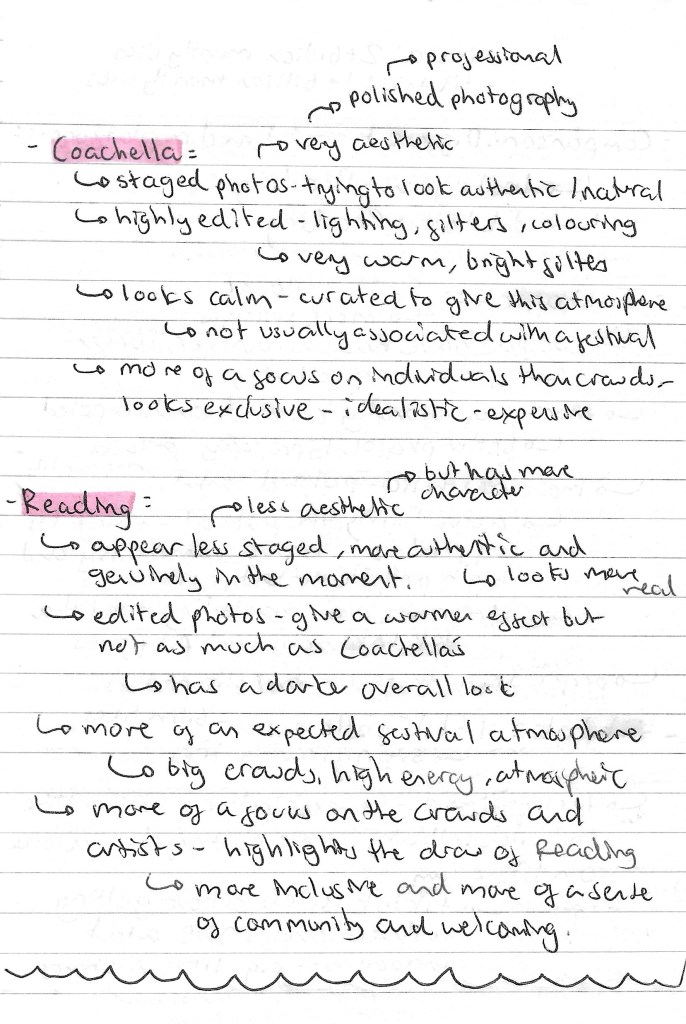 ↱ professional
↱ polished photography
- Coachella = ↱ very aesthetic
↳ staged photos - trying to look authentic / natural
↳ highly edited - lighting, filters, colouring
↳ very warm, bright filtes
↳ looks calm - curated to give this atmosphere
↳ not usually associated with a festival
↳ more of a focus on individuals than crowds -
looks exclusive - idealistic - expensive
↱ but has more
character
- Reading = ↱ less aesthetic
↳ appear less staged, more authentic and
genuinely in the moment. ↳ looks more
real
↳ edited photos - give a warmer effect but
not as much as Coachella's
↳ has a darker overall look
↳ more of an expected festival atmosphere
↳ big crowds, high energy, atmospheric
↳ more of a focus on the crowds and
artists - highlights the draw of Reading
↳ more inclusive and more of a sense
of community and welcoming.